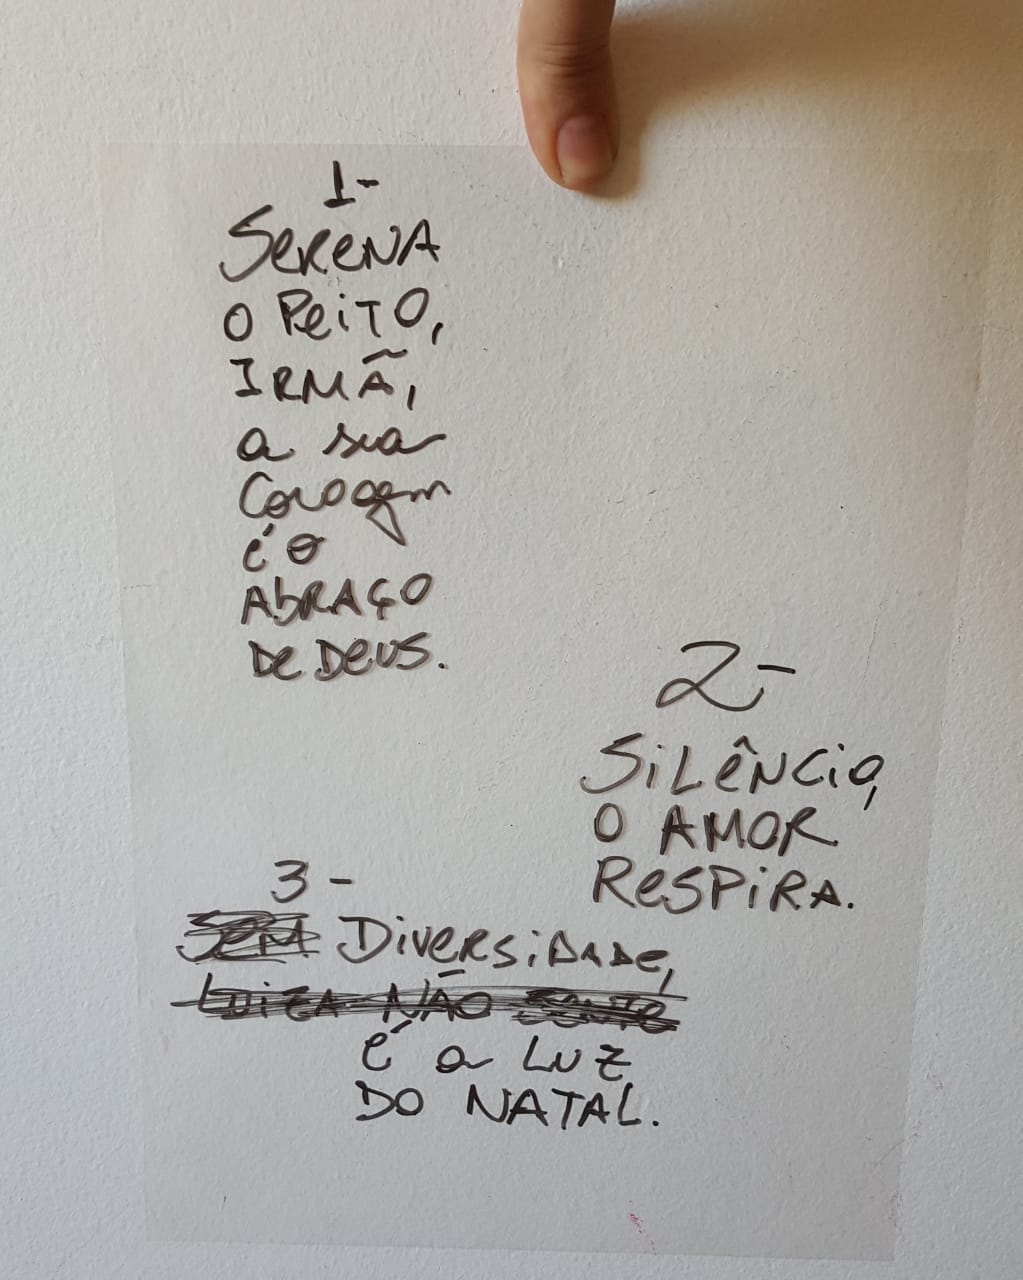 1-
SeReNA
O PeiTO,
IRMÃ,
a sua
Coragem
é o
AbRAÇO
De DeUS.
2-
SiLêNCiO,
O AMOR
ReSPiRA.
3-
SeM DiVeRSiDADe,
LUiZA NÃO
É a LUZ
DO NATAL.